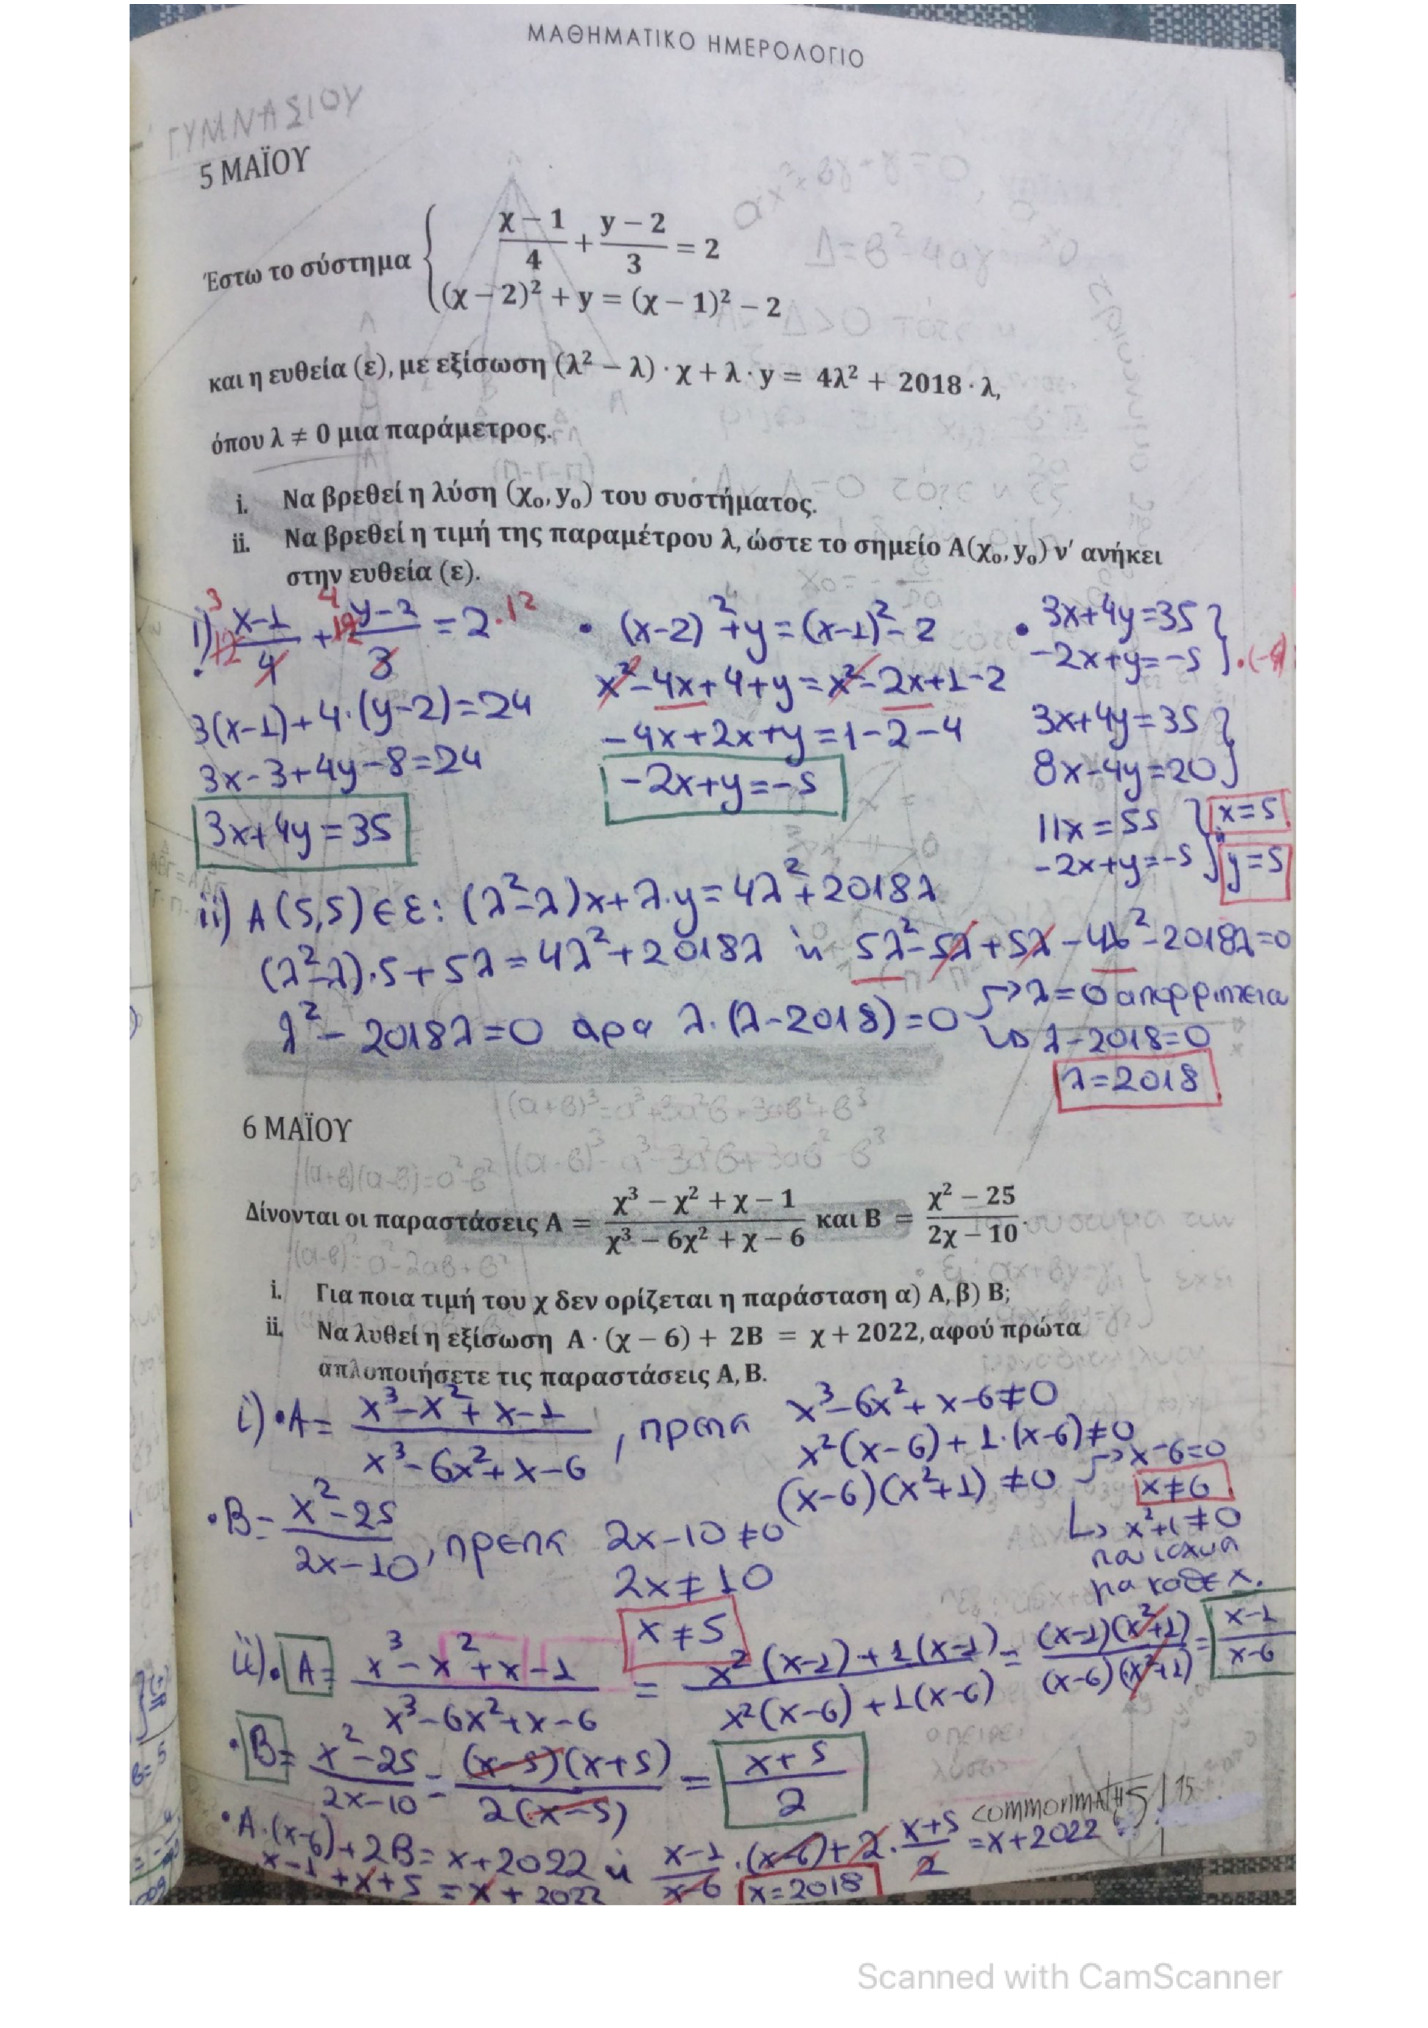 ΜΑΘΗΜΑΤΙΚΟ ΗΜΕΡΟΛΟΓΙΟ
ΓΥΜΝΑΣΙΟΥ
5 ΜΑΪΟΥ
Έστω το σύστημα { (χ − 1)/4 + (y − 2)/3 = 2
(χ − 2)² + y = (χ − 1)² − 2
και η ευθεία (ε), με εξίσωση (λ² − λ) · χ + λ · y = 4λ² + 2018 · λ,
όπου λ ≠ 0 μια παράμετρος.
i. Να βρεθεί η λύση (χ₀, y₀) του συστήματος.
ii. Να βρεθεί η τιμή της παραμέτρου λ, ώστε το σημείο Α(χ₀, y₀) ν' ανήκει
στην ευθεία (ε).
i) 12 (x-1)/4 + 12 (y-2)/3 = 2·12
3(x-1)+4·(y-2)=24
3x-3+4y-8=24
3x+4y=35
• (x-2)²+y=(x-1)²-2
x²-4x+4+y=x²-2x+1-2
-4x+2x+y=1-2-4
-2x+y=-5
• 3x+4y=35
-2x+y=-5 } ·(-4)
3x+4y=35
8x-4y=20
11x=55 } x=5
-2x+y=-5 } y=5
ii) A(5,5)∈ε: (λ²-λ)x+λ·y=4λ²+2018λ
(λ²-λ)·5+5λ=4λ²+2018λ ή 5λ²-5λ+5λ-4λ²-2018λ=0
λ²-2018λ=0 άρα λ·(λ-2018)=0 → λ=0 απορρίπτεται
→ λ-2018=0
λ=2018
(α+β)³=α³+3α²β+3αβ²+β³
6 ΜΑΪΟΥ
(α+β)(α-β)=α²-β² (α-β)³=α³-3α²β+3αβ²-β³
Δίνονται οι παραστάσεις Α = (χ³ − χ² + χ − 1)/(χ³ − 6χ² + χ − 6) και Β = (χ² − 25)/(2χ − 10).
(α-β)²=α²-2αβ+β²
i. Για ποια τιμή του χ δεν ορίζεται η παράσταση α) Α, β) Β;
ii. Να λυθεί η εξίσωση Α · (χ − 6) + 2Β = χ + 2022, αφού πρώτα
απλοποιήσετε τις παραστάσεις Α, Β.
i) •A= (x³-x²+x-1)/(x³-6x²+x-6), πρέπει x³-6x²+x-6≠0
x²(x-6)+1·(x-6)≠0
(x-6)(x²+1)≠0 → x-6=0
x≠6
→ x²+1≠0
που ισχύει
για κάθε x.
•B= (x²-25)/(2x-10), πρέπει 2x-10≠0
2x≠10
x≠5
ii) •A= (x³-x²+x-1)/(x³-6x²+x-6) = (x²(x-1)+1(x-1))/(x²(x-6)+1(x-6)) = ((x-1)(x²+1))/((x-6)(x²+1)) = (x-1)/(x-6)
•B= (x²-25)/(2x-10) = ((x-5)(x+5))/(2(x-5)) = (x+5)/2
commonmaths 5/15
•A·(x-6)+2B=x+2022 ή (x-1)/(x-6)·(x-6)+2·(x+5)/2=x+2022
x-1+x+5=x+2022 x=2018
Scanned with CamScanner